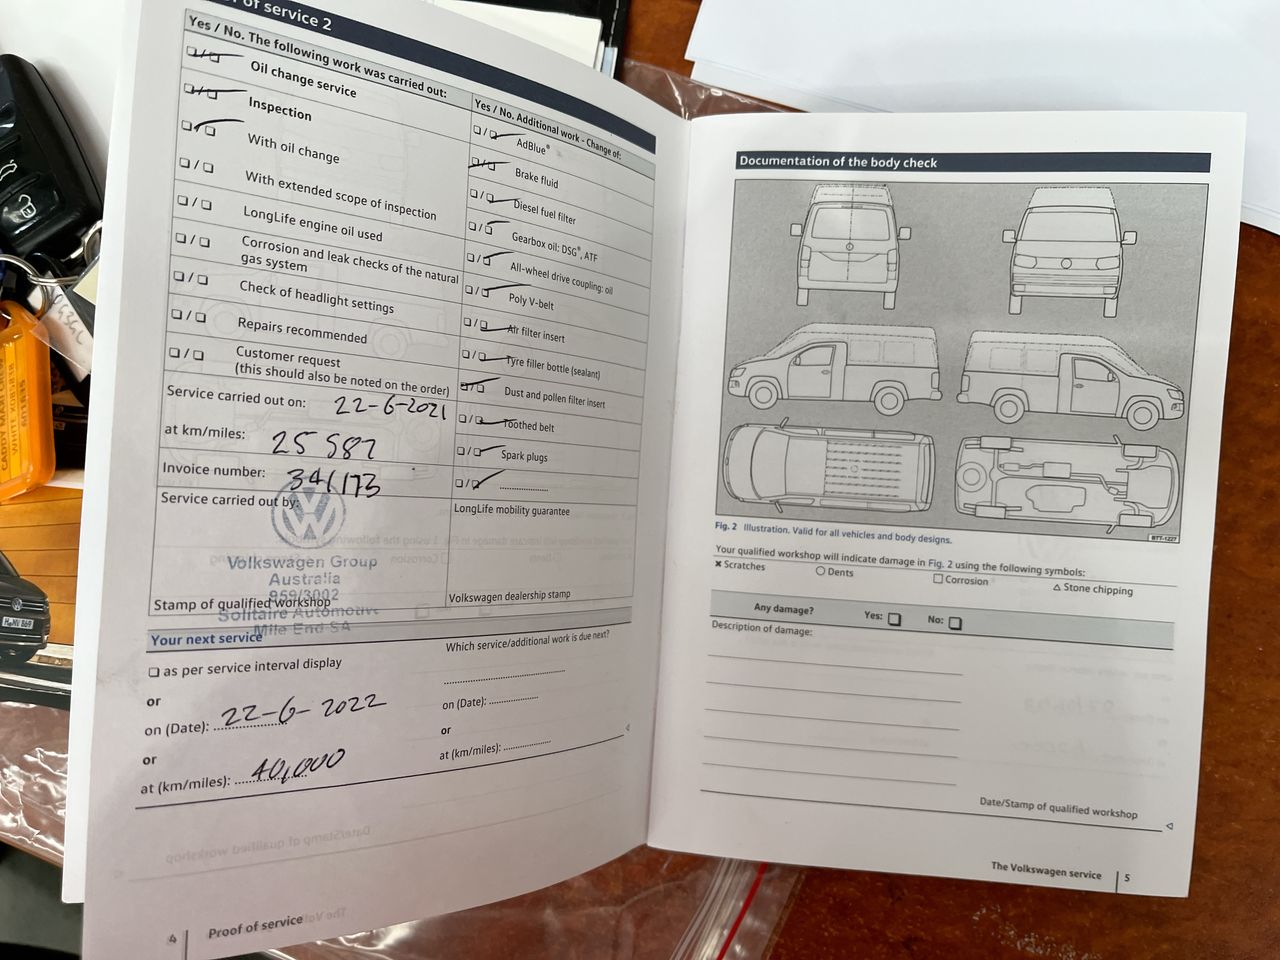 of service 2
Yes / No. The following work was carried out:
Oil change service
Inspection
With oil change
With extended scope of inspection
LongLife engine oil used
Corrosion and leak checks of the natural
gas system
Check of headlight settings
Repairs recommended
Customer request
(this should also be noted on the order)
Service carried out on: 22-6-2021
at km/miles: 25 587
Invoice number: 341173
Service carried out by:
Volkswagen Group
Australia
959/3002
Solitaire Automotive
Mile End SA
Stamp of qualified workshop
Yes / No. Additional work – Change of:
AdBlue®
Brake fluid
Diesel fuel filter
Gearbox oil: DSG®, ATF
All-wheel drive coupling: oil
Poly V-belt
Air filter insert
Tyre filler bottle (sealant)
Dust and pollen filter insert
Toothed belt
Spark plugs
LongLife mobility guarantee
Volkswagen dealership stamp
Your next service
as per service interval display
or
on (Date): 22-6-2022
or
at (km/miles): 40,000
Which service/additional work is due next?
on (Date):
or
at (km/miles):
4 Proof of service
Documentation of the body check
BTT-1227
Fig. 2 Illustration. Valid for all vehicles and body designs.
Your qualified workshop will indicate damage in Fig. 2 using the following symbols:
Scratches Dents Corrosion Stone chipping
Any damage? Yes: No:
Description of damage:
Date/Stamp of qualified workshop
The Volkswagen service 5